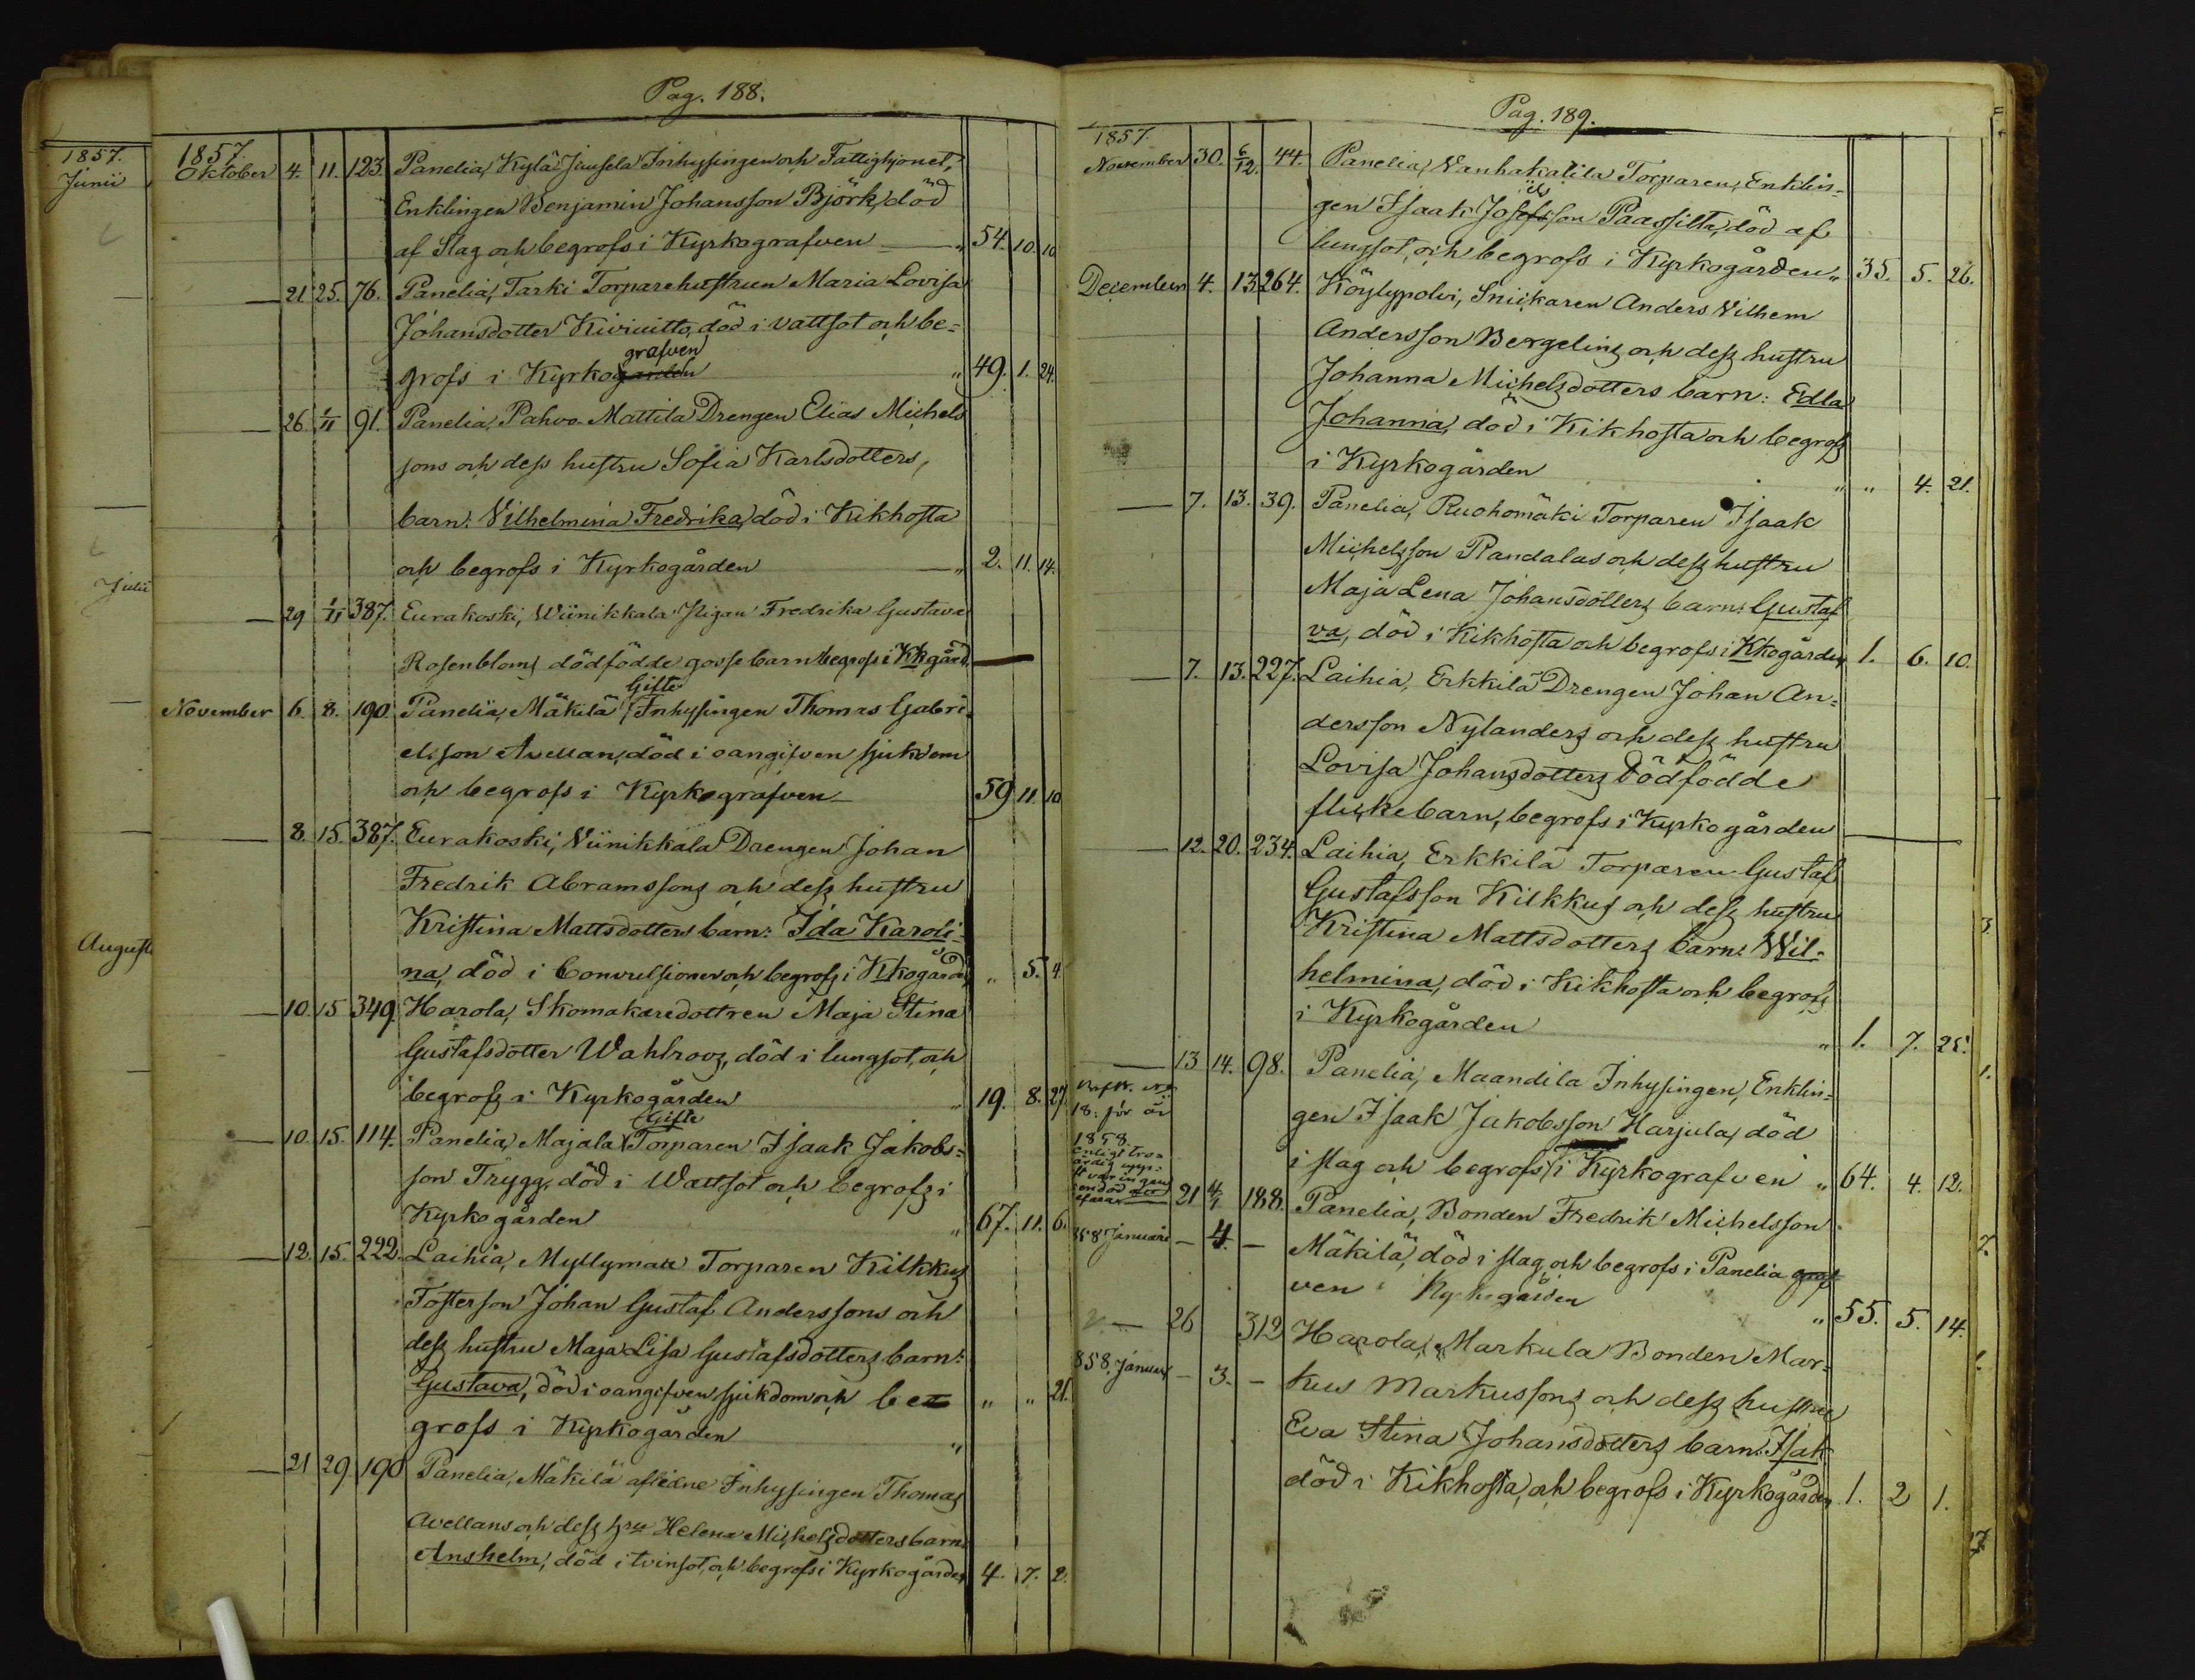 1857.
Junii
Julii
Augusti
Pag. 188.
1857.
Oktober 4. 11. 123. Panelia, Kylä Junsela Inhysingen och Fattighjonet,
Enklingen Benjamin Johansson Björk, död
af Slag och begrofs i Kyrkografven — „ 54. 10. 10
— 21 25. 76. Panelia, Tarki Torparehustrun Maria Lovisa
Johansdotter Kiviuitto, död i vattsot och be=
grafven
grofs i Kyrkogården „ 49. 1. 24.
— 26. 1/11 91. Panelia, Pahvo-Mattila Drengen Elias Michels
sons och dess hustru Sofia Karlsdotters,
barn: Vilhelmina Fredrika, död i Kikhosta
och begrofs i Kyrkogården — „ 2. 11. 14.
— 29 1/11 387. Eurakoski, Wiinikkala Pigan Fredrika Gustava
Rosenbloms dödfödde gosse barn begrofs i Kkgård. —
Gifte
November 6. 8. 190. Panelia, Mäkilä Inhysingen Thomas Gabri=
elsson Avellan, död i oangifven sjukdom
och begrofs i Kyrkografven — 59 11. 10
— 8. 15. 387. Eurakoski, Viinikkala Drengen Johan
Fredrik Abramssons och dess hustru
Kristina Mattsdotters barn: Ida Karoli=
na, död i Convulsioner och begrofs i Kkogård „ 5. 4.
— 10. 15 349. Harola, Skomakaredottren Maja Stina
Gustafsdotter Wahlroos, död i lungsot, och
begrofs i Kyrkogården „ 19. 8. 27.
Gifte
— 10. 15. 114. Panelia, Majala Torparen Isaak Jakobs=
son Trygg, död i Wattsot och begrofs i
Kyrkogården „ 67. 11. 6.
— 12. 15. 222. Laihia, Myllymaa Torparen Kilkkus
Fosterson Johan Gustaf Anderssons och
dess hustru Maja Lisa Gustafsdotters barn:
Gustava, död i oangifven sjukdom och be „ „ 21.
grofs i Kyrkogården „
— 21 29. 190 Panelia, Mäkilä aflidne Inhysingen Thomas
Avellans och dess hru Helena Michelsdotters barn
Anshelm, död i tvinsot, och begrofs i Kyrkogården 4. 7. 2.
Pag. 189.
1857
November 30. 6/12. 44. Panelia, Vanhakalila Torparen, Enklin=
gen Isaak Josefsson Paassilta, död af
lungsot, och begrofs i Kyrkogården „ 35. 5. 26.
December 4. 13 264. Köylypolvi, Snickaren Anders Vilhem
Andersson Bergelins och dess hustru
Johanna Michelsdotters barn: Edla
Johanna, död i Kikhosta och begrofs
i Kyrkogården „ „ 4. 21.
— 7. 13. 39. Panelia, Ruohomäki Torparen Isaak
Michelsson Randalas och dess hustru
Maja Lena Johansdotters barn: Gustaf
va, död i Kikhosta och begrofs i Kkogården 1. 6. 10.
— 7. 13. 227. Laihia, Erkkilä Drengen Johan An=
dersson Nylanders och dess hustru
Lovisa Johansdotters Dödfödde
flickebarn, begrofs i Kyrkogården —
— 12. 20. 234. Laihia, Erkkilä Torparen Gustaf
Gustafsson Kilkkus och dess hustru
Kristina Mattsdotters barn: Wil=
helmina, död i Kikhosta och begrofs
i Kyrkogården „ 1. 7. 25.
— 13 14. 98. Panelia, Maandila Inhysingen, Enklin=
gen Isaak Jakobsson Harjula, död
i slag och begrofs i Kyrkografven „ 64. 4. 12.
18: för år
1858.
enligt tro=
21 4/1 188. Panelia, Bonden Fredrik Michelsson
858 Januari — 4. — Mäkilä, död i slag och begrofs i Panelia graf
ven i Kyrkogården „ 55. 5. 14.
— 26 312 Harola, Markula Bonden Mar=
858. Januari — 3. — kus Markussons och dess hustru
Eva Stina Johansdotters barn: Isak
död i Kikhosta, och begrofs i Kyrkogården 1. 2 1.